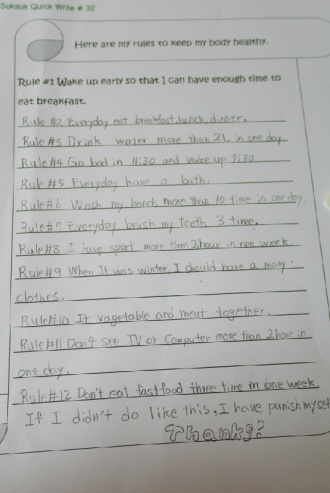 Suksuk Quick Write # 32
Here are my rules to keep my body healthy.
Rule #1 Wake up early so that I can have enough time to
eat breakfast.
Rule #2 Everyday eat breakfast, lunch, dinner.
Rule #3 Drink water more than 2L in one day
Rule #4 Go bad in 11:30 and wake up 7:30
Rule #5 Everyday have a bath.
Rule #6 Wash my hands more than 10 time in one day.
Rule #7 Everyday brush my teeth 3 time.
Rule #8 I have sport more than 2hour in one week
Rule #9 When It was winter, I should have a many
clothes.
Rule #10 It vagetable and meat together.
Rule #11 Don't see TV or Computer more than 2hour in
one day.
Rule #12 Don't eat fastfood three time in one week
If I didn't do like this, I have punish myself
Thanks!